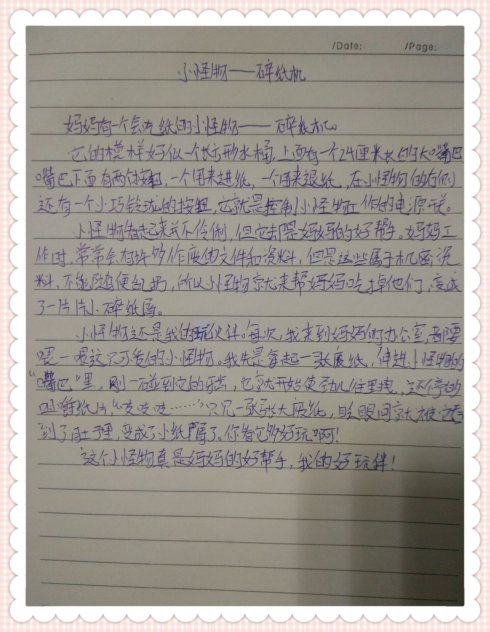 /Date: /Page:
小怪物——碎纸机
妈妈有一个会吃纸的小怪物——碎纸机。
它的模样好似一个长方形水桶,上面有一个24厘米长的大嘴巴
嘴巴下面有两个按钮,一个用来进纸,一个用来退纸,在小怪物的右侧
还有一个小巧玲珑的按钮,它就是控制小怪物工作的电源
小怪物看起来我不伶俐,但它却是妈妈的好帮手。妈妈工
作时,常常会有许多作废的文件和资料,但是这些属于机密资
料,不能随便乱扔,所以小怪物就来帮妈妈吃掉他们,变成
了一片片小碎纸屑。
小怪物还是我的玩伙伴。每次,我来到妈妈的办公室,都要
喂一喂这只可爱的小怪物。我先拿起一张废纸,伸进小怪物的
“嘴巴”里,刚一碰到它的牙齿,它就开始使劲儿往里拽,还不停的
咀嚼纸片“吱吱吱……”只见一张张大废纸,眨眼间就被它吞
到了肚子里,变成了小纸屑了。你看它多好玩啊!
这个小怪物真是妈妈的好帮手,我的好玩伴!